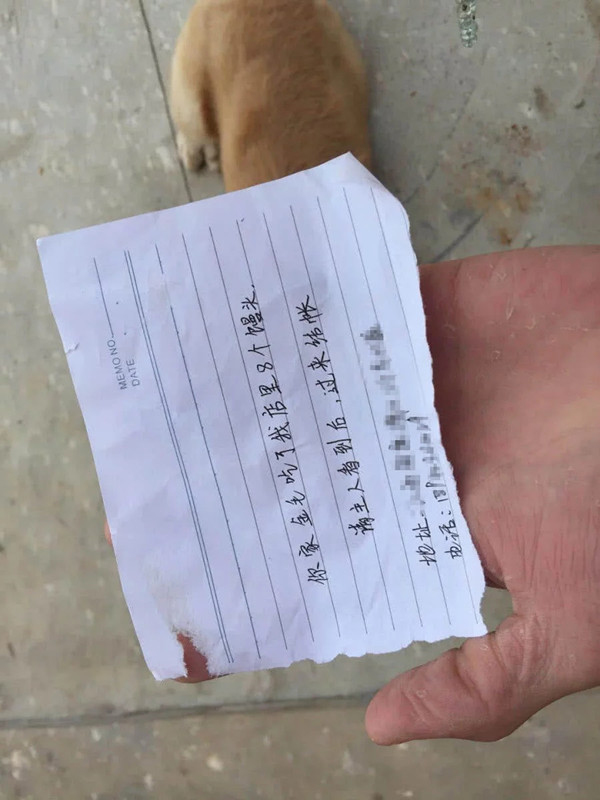 MEMO NO.
DATE
你家金毛吃了我店里8个馒头.
请主人看到后,过来结帐
地址:
电话: